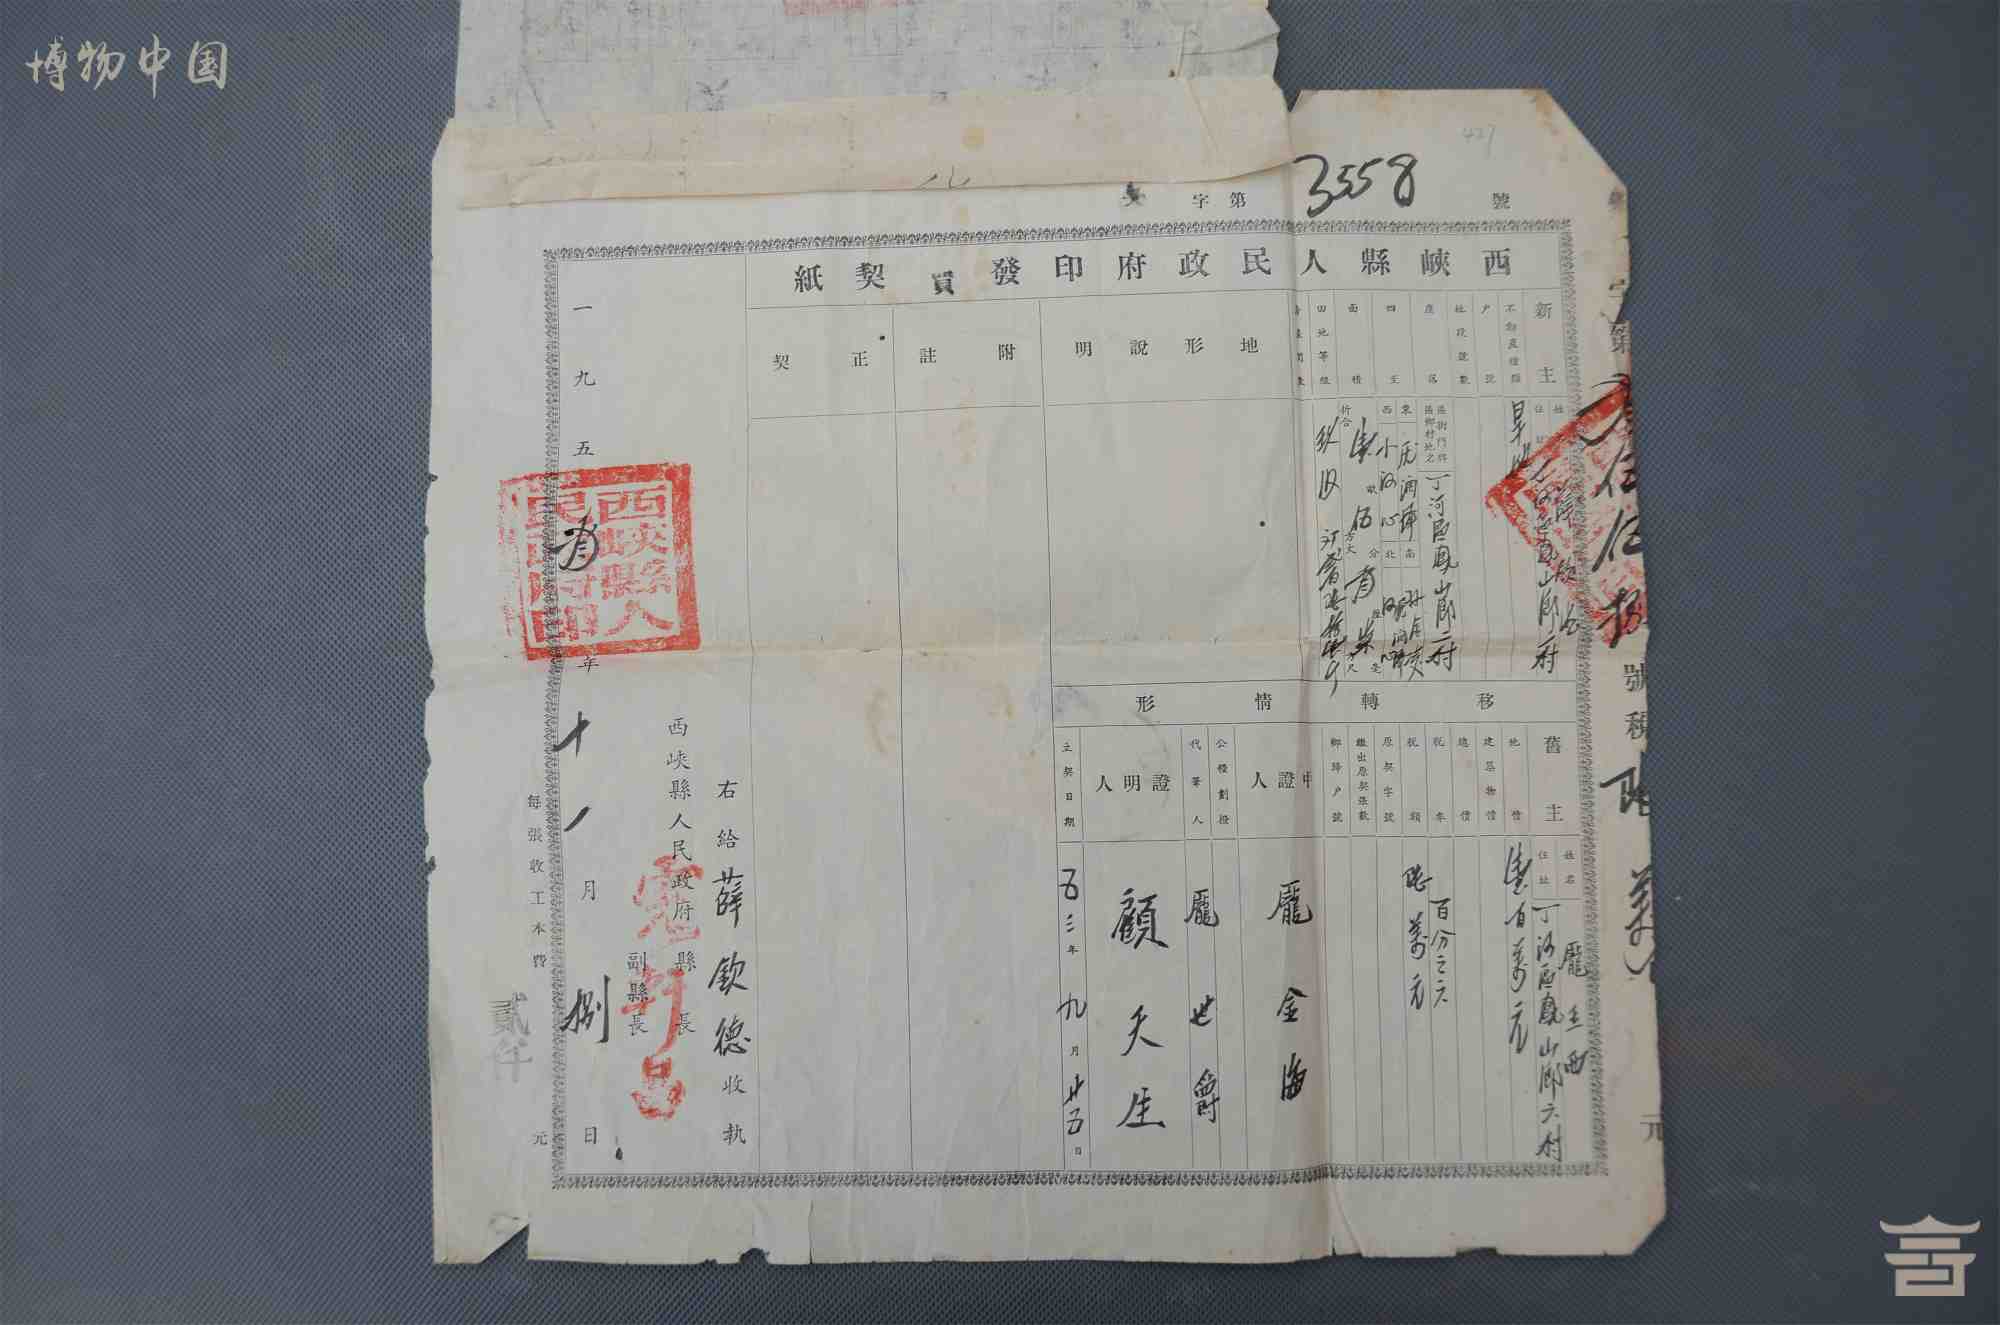 博物中国
427
字第3558號
西峽縣人民政府印發買契紙
新主
姓
住
丁河區鳳山鄉二村
不動產種類
旱地
户號
地段號數
座落
區鄉村地之
區街門牌
丁河區鳳山鄉二村
四至
東
南
西
小河心
北
河心
面積
畝
分
折合
方丈
方尺
田地等級
地形說明
附註
正契
移轉情形
舊主
姓名
龐
西
住址
丁河區鳳山鄉六村
地價
壹百萬元
建築物價
總價
稅率
百分之六
稅額
陸萬元
原契字號
繳出原契張數
鄉歸户號
中證人
龐金海
公權劃撥
代筆人
龐世爵
證明人
顧天生
立契日期
五三年九月廿五日
右給薛欽德收執
西峽縣人民政府縣長
副縣長
一九五
年十一月捌日
西峽縣人民政府印
每張收工本費貳仟元
字第
伍捌號稅陸萬
元